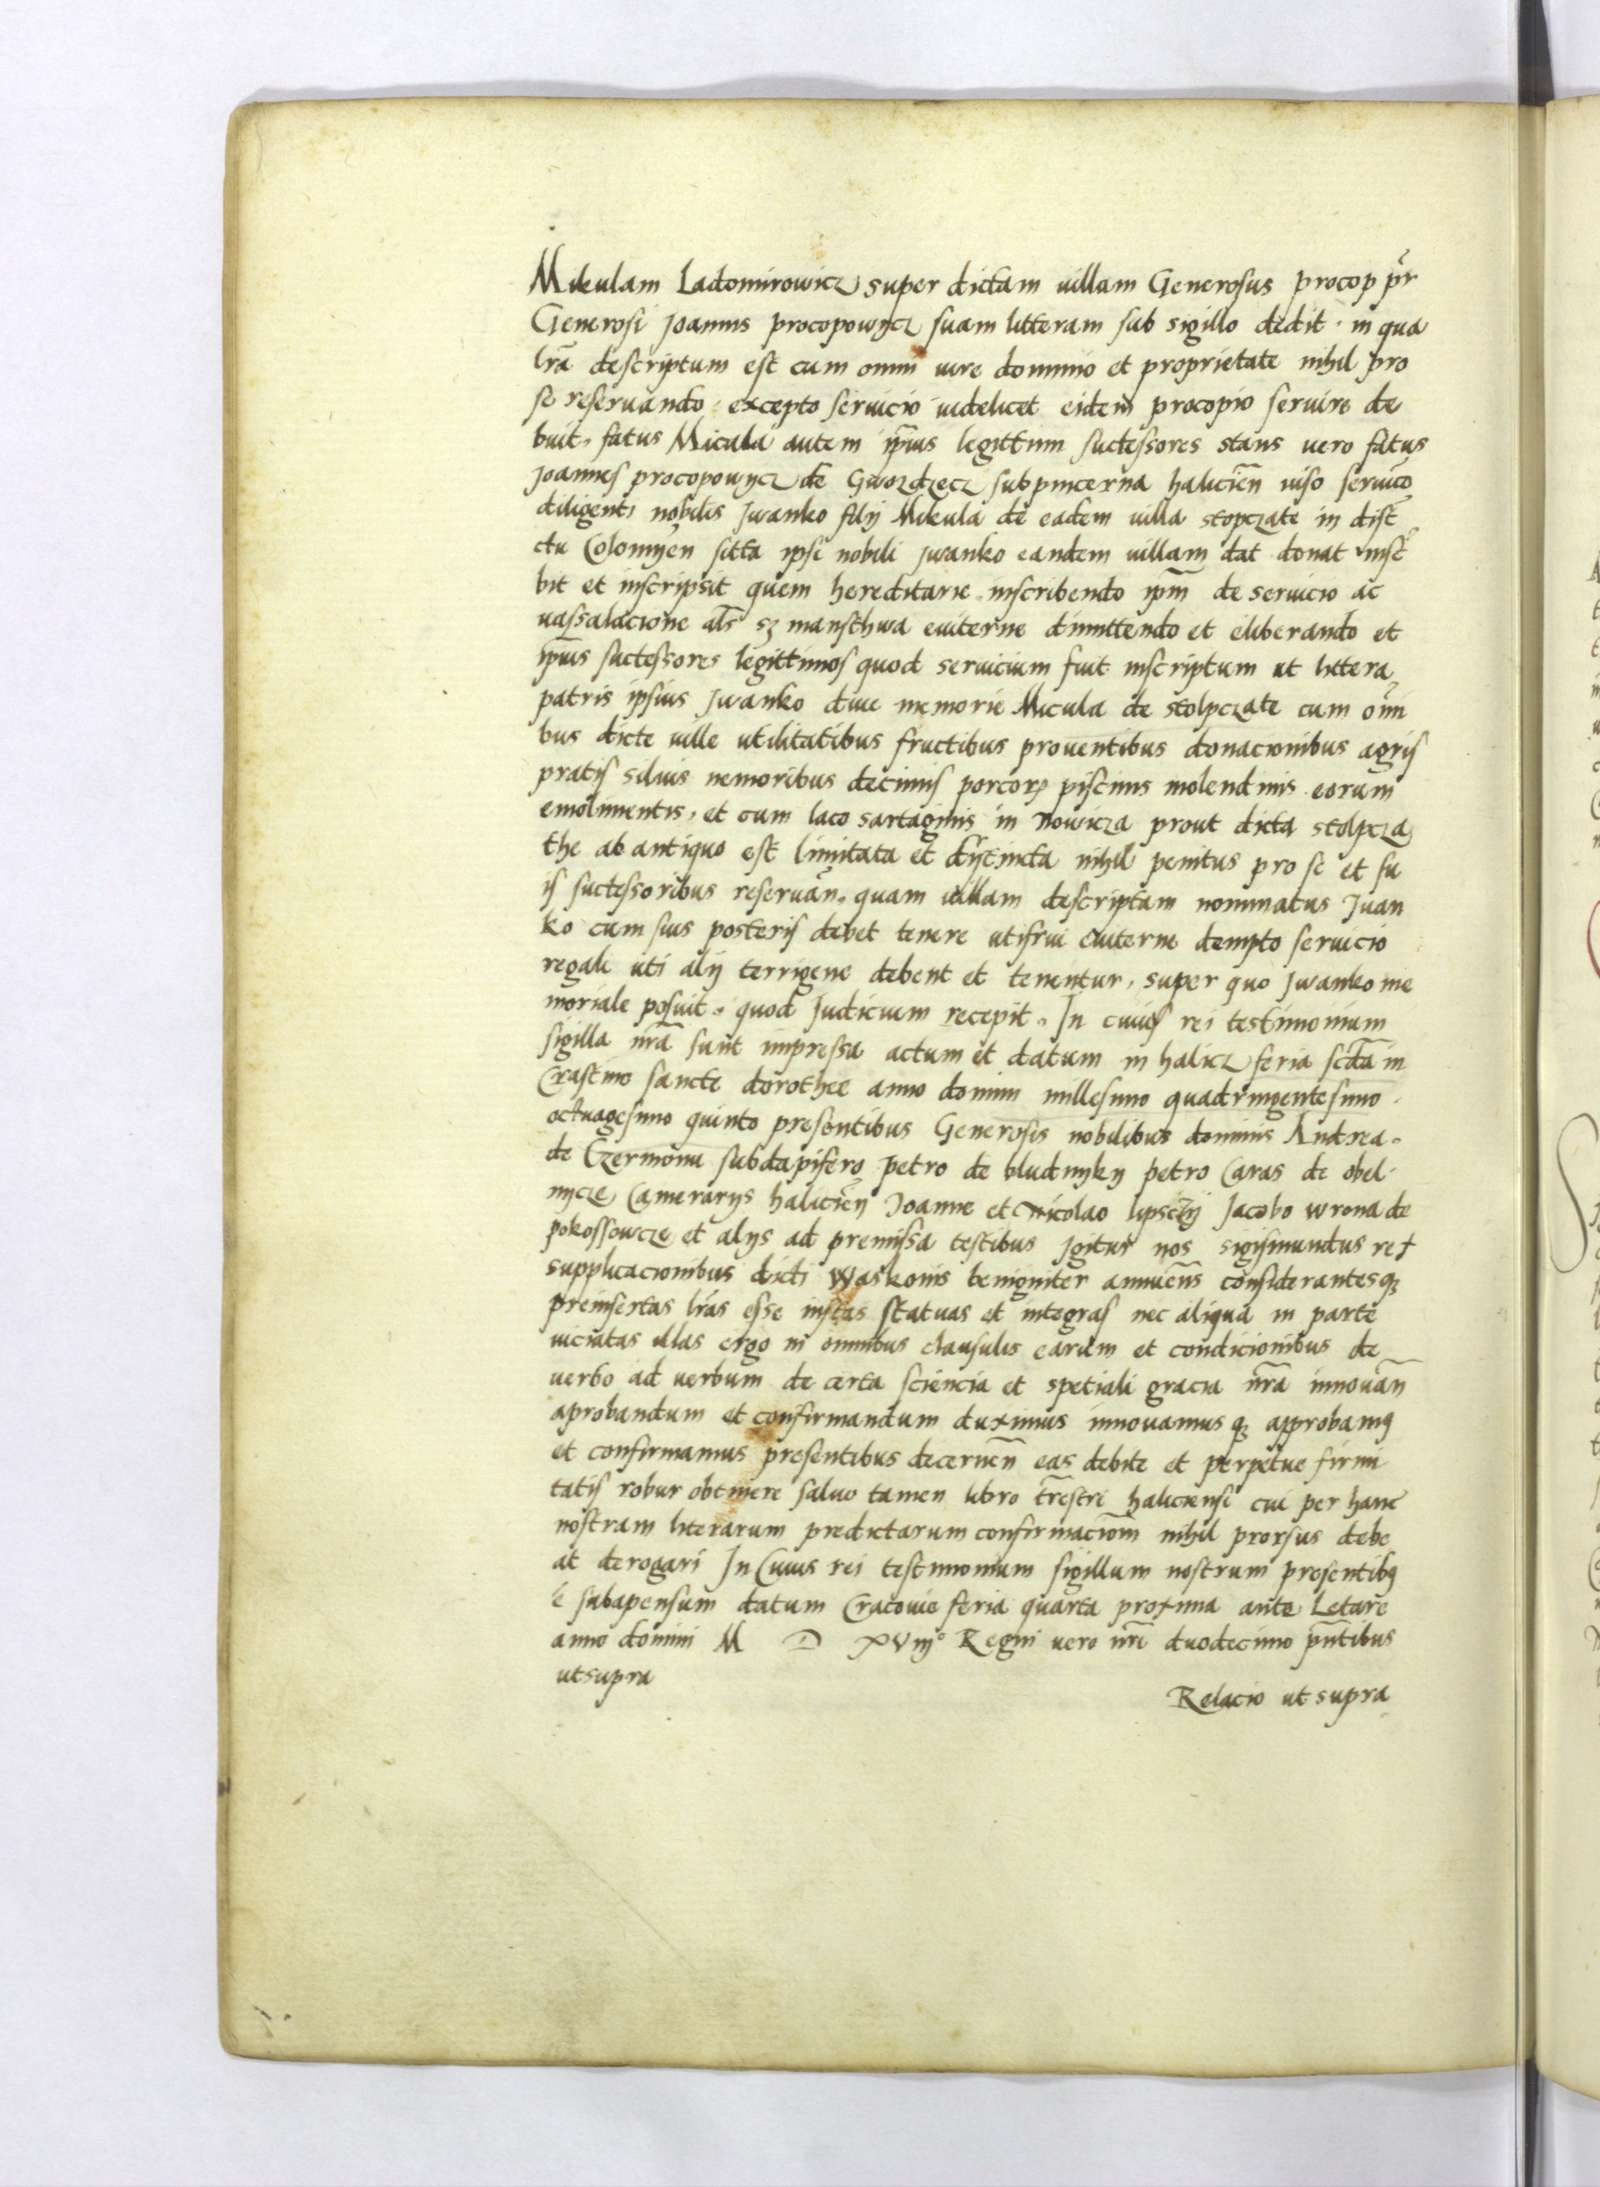 Mikulam Ladomirowicz super dictam villam Generosus procop pr̃
Generosi Joannis procopowijcz suam litteram sub sigillo dedit · in qua
lrã descriptum est cum omni iure dominio et proprietate nihil pro
se reseruando · excepto seruicio videlicet eidem procopio seruire de
buit · fatus Micula autem ip̃ius legittimi suctessores stans vero fatus
Joannes procopowijcz de Gwozdzecz subpincerna halicieñ viso seruico
diligenti nobilis Jwanko filij Mikula de eadem villa stopczate in dist
ctu Colomijen sitta ipsi nobili jwanko eandem villam dat donat inscr
bit et inscripsit quem hereditarie inscribendo ip̃m de seruicio ac
vassalacione al̃s sz mansthwa euiterne dimittendo et eliberando et
ip̃ius suctessores legittimos quod seruicium fuit inscriptum ut littera
patris ipsius Jwanko diue memorie Micula de stolpczate cum om̃i
bus dicte ville utilitatibus fructibus prouentibus donacionibus agris
pratis siluis nemoribus decimis porcorꝝ piscinis molendinis eorum
emolimentis, et cum laco sartaginis in Nowicza prout dicta stolpcza
the ab antiquo est limitata et distincta nihil penitus pro se et su
is suctessoribus reseruañ · quam villam descriptam nominatus Juan
ko cum suis posteris debet tenere utifrui euiterne dempto seruicio
regali uti alij terrigene debent et tenentur, super quo Jwanko me
moriale posuit · quod Judicium recepit · In cuius rei testimonium
sigilla nrã sunt impressa actum et datum in halicz feria scd̃a in
Crastino sancte dorothee anno domini millesimo quadringentesimo ·
octuagesimo quinto presentibus Generosis nobilibus dominis Andrea ·
de Czermonu subdapifero petro de bludnyky petro Caras de obel ·
nycze Camerarijs halicieñ Joanne et nicolao lipsczij Jacobo wrona de
pokossowcze et alijs ad premissa testibus Jgitur nos sigismundus rex
supplicacionibus dicti Waskonis benigniter annueñs considerantesqꝫ
preinsertas lrãs esse iustas statuas et integras nec aliqua in parte
viciatas illas ergo in omnibus clausulis earum et condicionibus de
verbo ad verbum de certa sciencia et spetiali gracia nrã innouañ
aprobandum et confirmandum duximus innouamusqꝫ approbamꝰ
et confirmamus presentibus decerneñ eas debite et perpetue firmi
tatis robur obtinere saluo tamen libro tr̃estri haliciensi cui per hanc
nostram literarum predictarum confirmaciom̃ nihil prorsus debe
at derogari In Cuius rei testimonium sigillum nostrum presentibꝰ
ẽ subapensum datum Cracouie feria quarta proxima ante Letare
anno domini M D XViijº Regni vero nrĩ duodecimo pñtibus
ut supra
Relacio ut supra